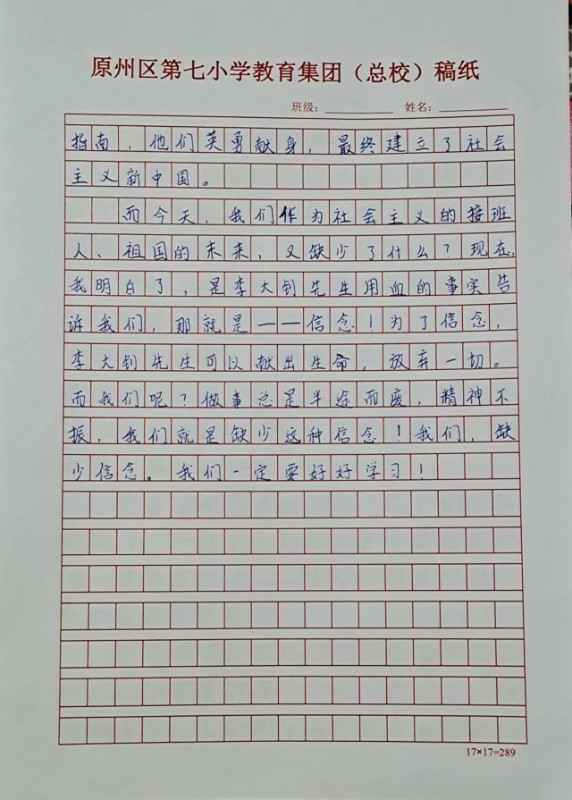 原州区第七小学教育集团（总校）稿纸
班级： 姓名：
指南，他们英勇献身，最终建立了社会
主义新中国。
而今天，我们作为社会主义的接班
人、祖国的未来，又缺少了什么？现在，
我明白了，是李大钊先生用血的事实告
诉我们，那就是——信念！为了信念，
李大钊先生可以献出生命，放弃一切。
而我们呢？做事总是半途而废，精神不
振，我们就是缺少这种信念！我们，缺
少信念。我们一定要好好学习！
17×17=289